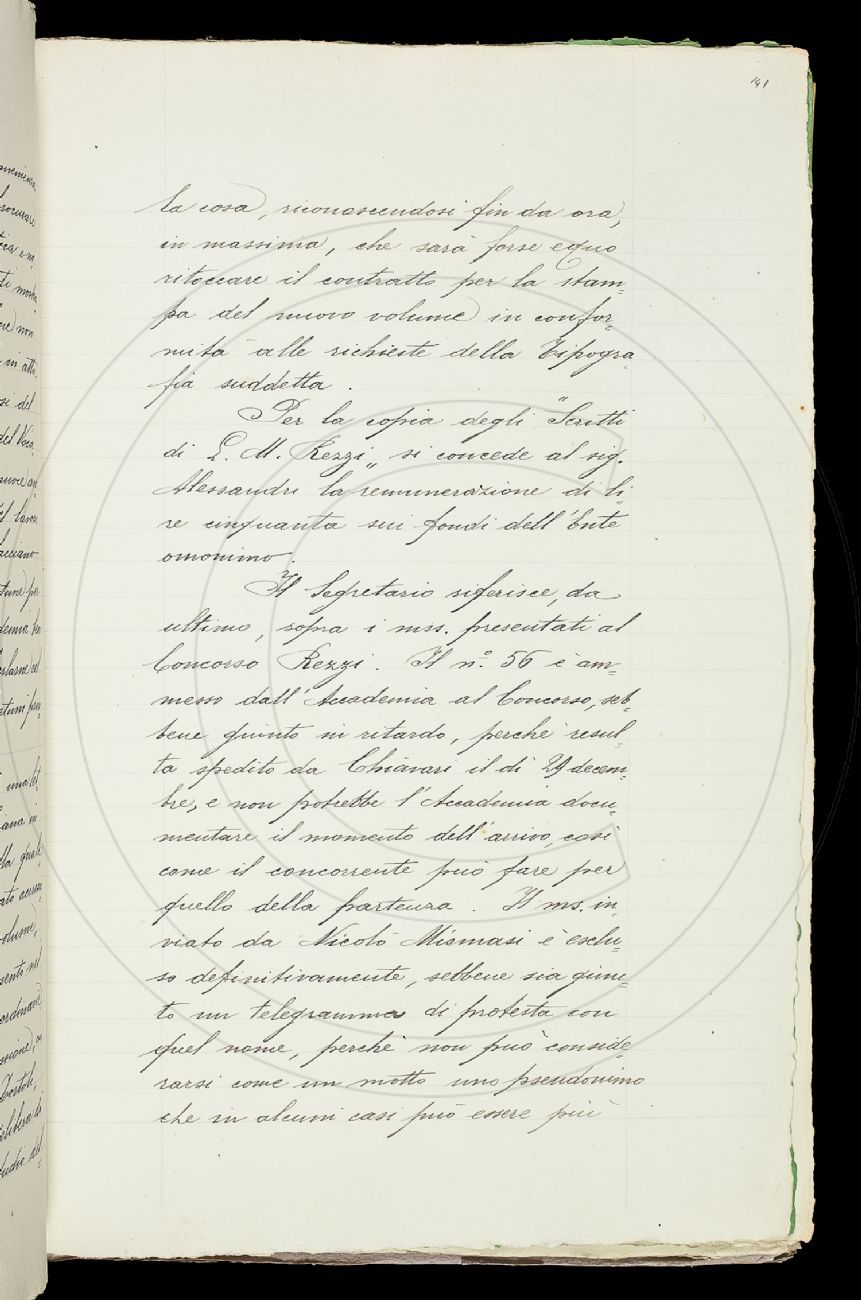 191
la cosa, riconoscendosi fin da ora,
in massima, che sarà forse equo
ritoccare il contratto per la stam=
pa del nuovo volume in confor=
mità alle richieste della Tipogra=
fia suddetta.
Per la copia degli "Scritti
di L. M. Rezzi„ si concede al sig.
Alessandri la remunerazione di li=
re cinquanta sui fondi dell'Ente
omonimo.
Il Segretario riferisce, da
ultimo, sopra i mss. presentati al
Concorso Rezzi. Il n.º 56 è am=
messo dall'Accademia al Concorso, seb=
bene giunto in ritardo, perchè resul=
ta spedito da Chiavari il dì 29 decem=
bre, e non potrebbe l'Accademia docu=
mentare il momento dell'arrivo, così
come il concorrente può fare per
quello della partenza. Il ms. in=
viato da Nicolò Mismasi è esclu=
so definitivamente, sebbene sia giun=
to un telegramma di protesta con
quel nome, perchè non può conside=
rarsi come un motto uno pseudonimo
che in alcuni casi può essere più